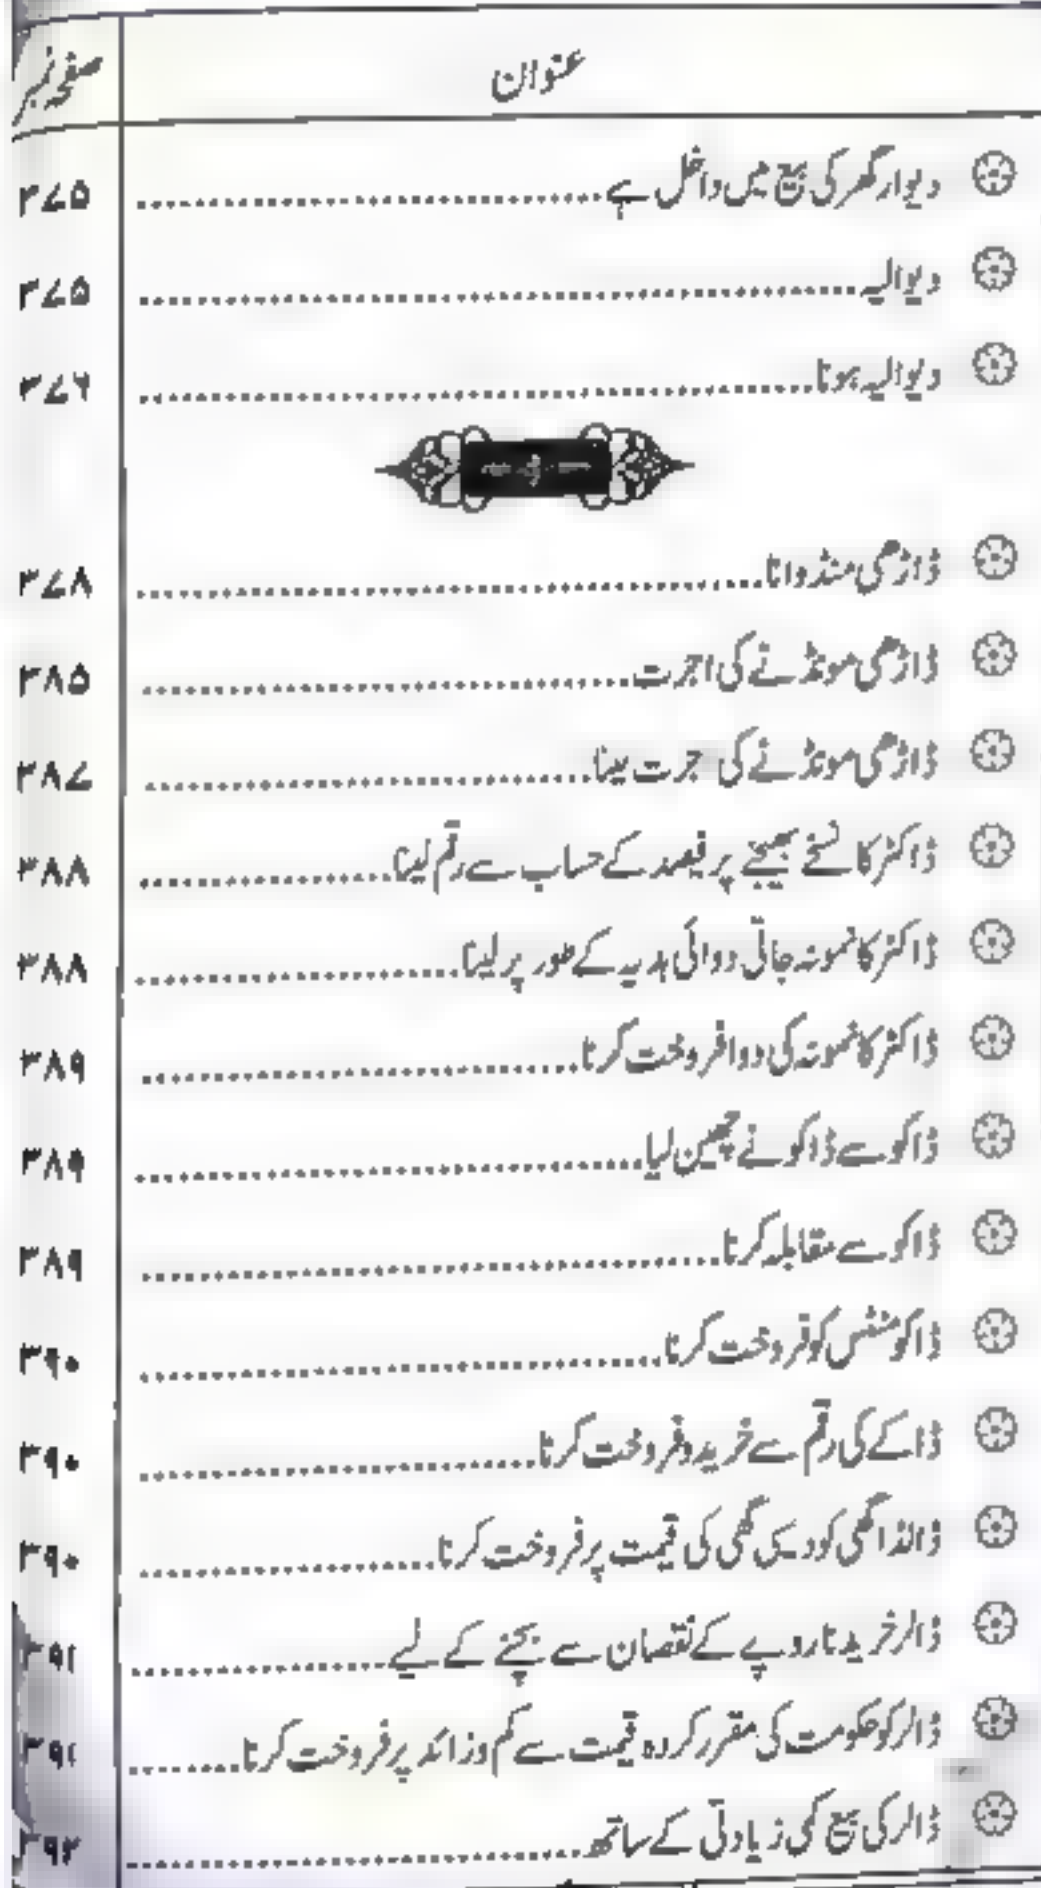 عنوان صفحہ نمبر
دیوار گھر کی بیع میں داخل ہے ۳۷۵
دیوالیہ ۳۷۵
دیوالیہ ہونا ۳۷۶
ڈاڑھی منڈوانا ۳۷۸
ڈاڑھی مونڈنے کی اجرت ۳۸۵
ڈاڑھی مونڈنے کی اجرت لینا ۳۸۷
ڈاکٹر کا نسخے بھیجنے پر فیصد کے حساب سے رقم لینا ۳۸۸
ڈاکٹر کا نمونہ جاتی دوائی ہدیہ کے طور پر لینا ۳۸۸
ڈاکٹر کا نمونہ کی دوا فروخت کرنا ۳۸۹
ڈاکو سے ڈاکو نے چھین لیا ۳۸۹
ڈاکو سے مقابلہ کرنا ۳۸۹
ڈاکومنٹس کو فروخت کرنا ۳۹۰
ڈاکے کی رقم سے خرید و فروخت کرنا ۳۹۰
ڈالڈا گھی کو دیسی گھی کی قیمت پر فروخت کرنا ۳۹۰
ڈالر خریدنا روپے کے نقصان سے بچنے کے لیے ۳۹۱
ڈالر کو حکومت کی مقرر کردہ قیمت سے کم وزائد پر فروخت کرنا ۳۹۱
ڈالر کی بیع کمی زیادتی کے ساتھ ۳۹۲